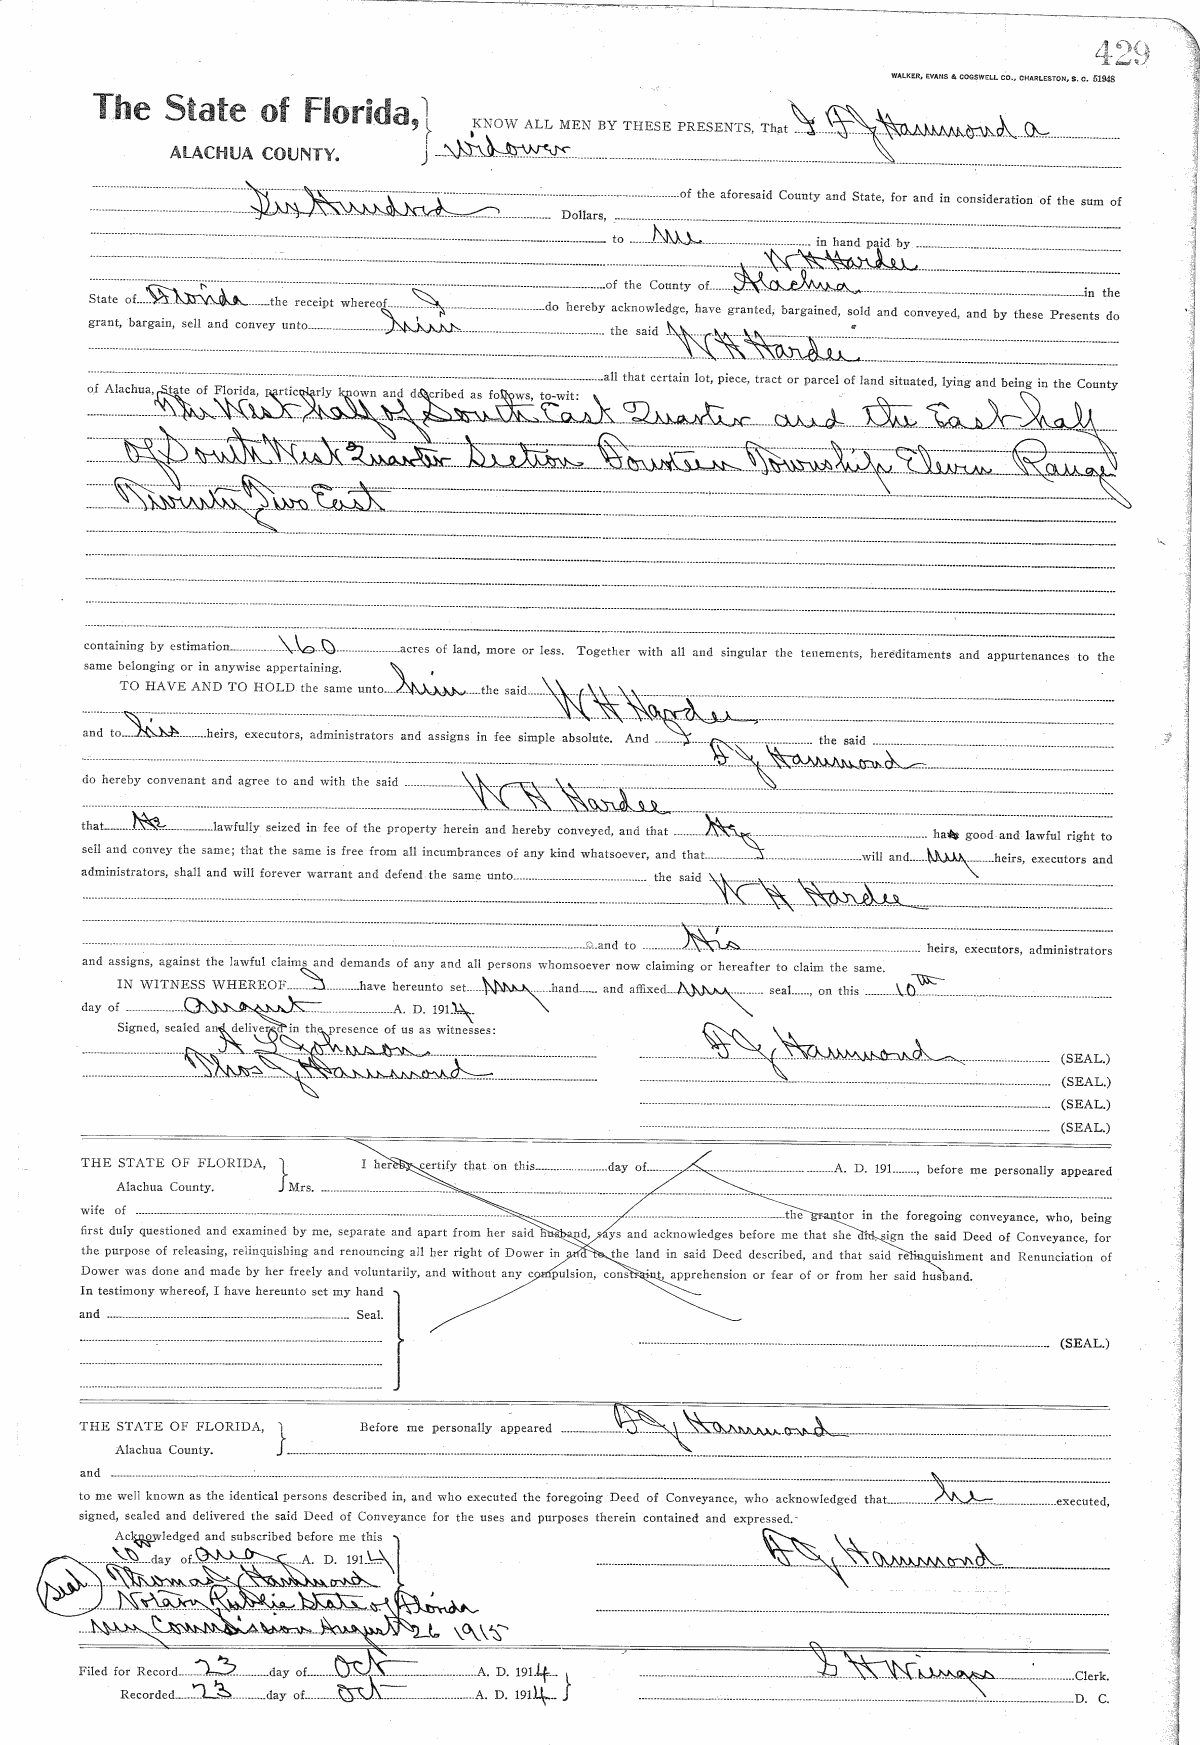 429
WALKER, EVANS & COGSWELL CO., CHARLESTON, S. C. 51948
The State of Florida,
ALACHUA COUNTY.
KNOW ALL MEN BY THESE PRESENTS, That I F J Hammond a
Widower
of the aforesaid County and State, for and in consideration of the sum of
Six Hundred Dollars,
to me in hand paid by
W H Hardee
of the County of Alachua in the
State of Florida the receipt whereof I do hereby acknowledge, have granted, bargained, sold and conveyed, and by these Presents do
grant, bargain, sell and convey unto him the said W H Hardee
all that certain lot, piece, tract or parcel of land situated, lying and being in the County
of Alachua, State of Florida, particularly known and described as follows, to-wit:
The West half of South East Quarter and the East half
of South West Quarter Section Fourteen Township Eleven Range
Twenty Two East
containing by estimation 160 acres of land, more or less. Together with all and singular the tenements, hereditaments and appurtenances to the
same belonging or in anywise appertaining.
TO HAVE AND TO HOLD the same unto him the said W H Hardee
and to his heirs, executors, administrators and assigns in fee simple absolute. And I the said
F J Hammond
do hereby convenant and agree to and with the said W H Hardee
that He lawfully seized in fee of the property herein and hereby conveyed, and that He has good and lawful right to
sell and convey the same; that the same is free from all incumbrances of any kind whatsoever, and that I will and My heirs, executors and
administrators, shall and will forever warrant and defend the same unto the said W H Hardee
and to His heirs, executors, administrators
and assigns, against the lawful claims and demands of any and all persons whomsoever now claiming or hereafter to claim the same.
IN WITNESS WHEREOF I have hereunto set My hand and affixed My seal, on this 10th
day of August A. D. 1914
Signed, sealed and delivered in the presence of us as witnesses:
A L Johnson
F J Hammond (SEAL.)
Thos J Hammond
(SEAL.)
(SEAL.)
(SEAL.)
THE STATE OF FLORIDA,
Alachua County.
I hereby certify that on this day of A. D. 191 , before me personally appeared
Mrs.
wife of the grantor in the foregoing conveyance, who, being
first duly questioned and examined by me, separate and apart from her said husband, says and acknowledges before me that she did sign the said Deed of Conveyance, for
the purpose of releasing, relinquishing and renouncing all her right of Dower in and to the land in said Deed described, and that said relinquishment and Renunciation of
Dower was done and made by her freely and voluntarily, and without any compulsion, constraint, apprehension or fear of or from her said husband.
In testimony whereof, I have hereunto set my hand
and Seal.
(SEAL.)
THE STATE OF FLORIDA,
Alachua County.
Before me personally appeared F J Hammond
and
to me well known as the identical persons described in, and who executed the foregoing Deed of Conveyance, who acknowledged that he executed,
signed, sealed and delivered the said Deed of Conveyance for the uses and purposes therein contained and expressed.
Acknowledged and subscribed before me this
10 day of Aug A. D. 1914
F J Hammond
Seal
Thomas J Hammond
Notary Public State of Florida
My Commission August 26 1915
Filed for Record 23 day of Oct A. D. 1914
S H Wienges Clerk.
Recorded 23 day of Oct A. D. 1914
D. C.